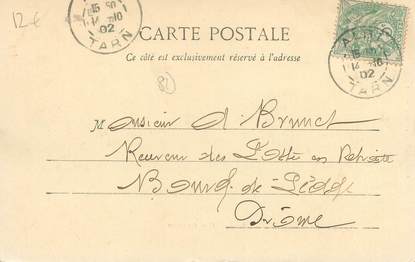 12 €
02
TARN
CARTE POSTALE
Ce côté est exclusivement réservé à l'adresse
02
TARN
81
Monsieur A Brunet
Receveur des Postes en Retraite
Bourg-de-Péage
Drôme